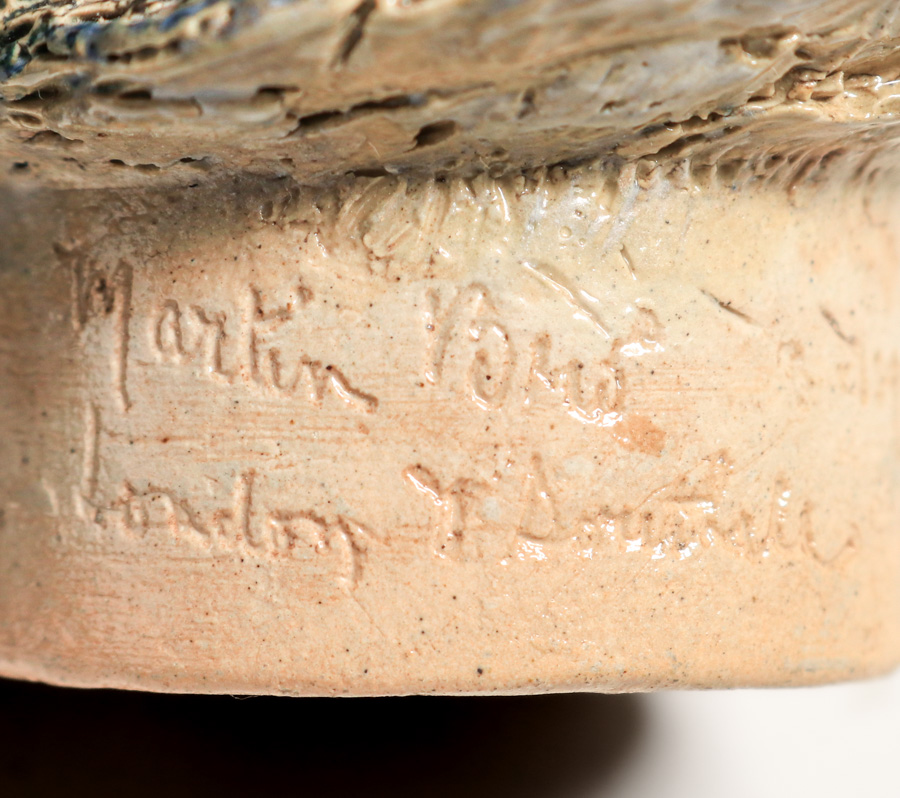 Martin Bros
London & Southall